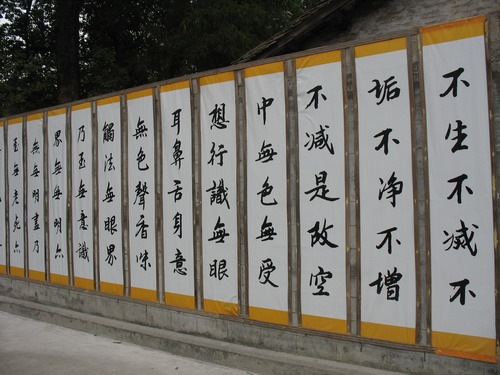 不生不滅不
垢不净不增
不减是故空
中無色無受
想行識無眼
耳鼻舌身意
無色聲香味
觸法無眼界
乃至無意識
界無無明亦
無無明盡乃
至無老死亦